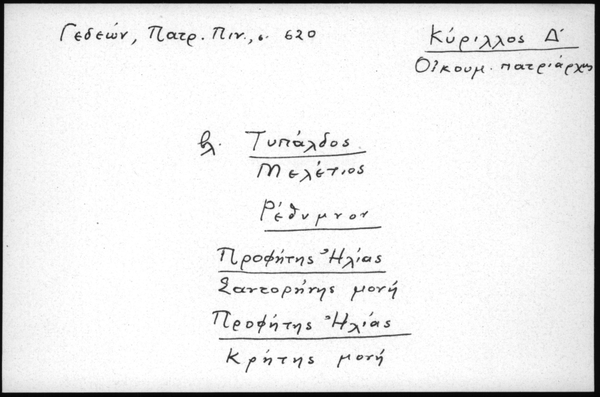 Γεδεών, Πατρ. Πιν., σ. 620
Κύριλλος Δ΄
Οἰκουμ. πατριάρχης
βλ. Τυπάλδος
Μελέτιος
Ρέθυμνον
Προφήτης Ἠλίας
Σαντορήνης μονή
Προφήτης Ἠλίας
Κρήτης μονή